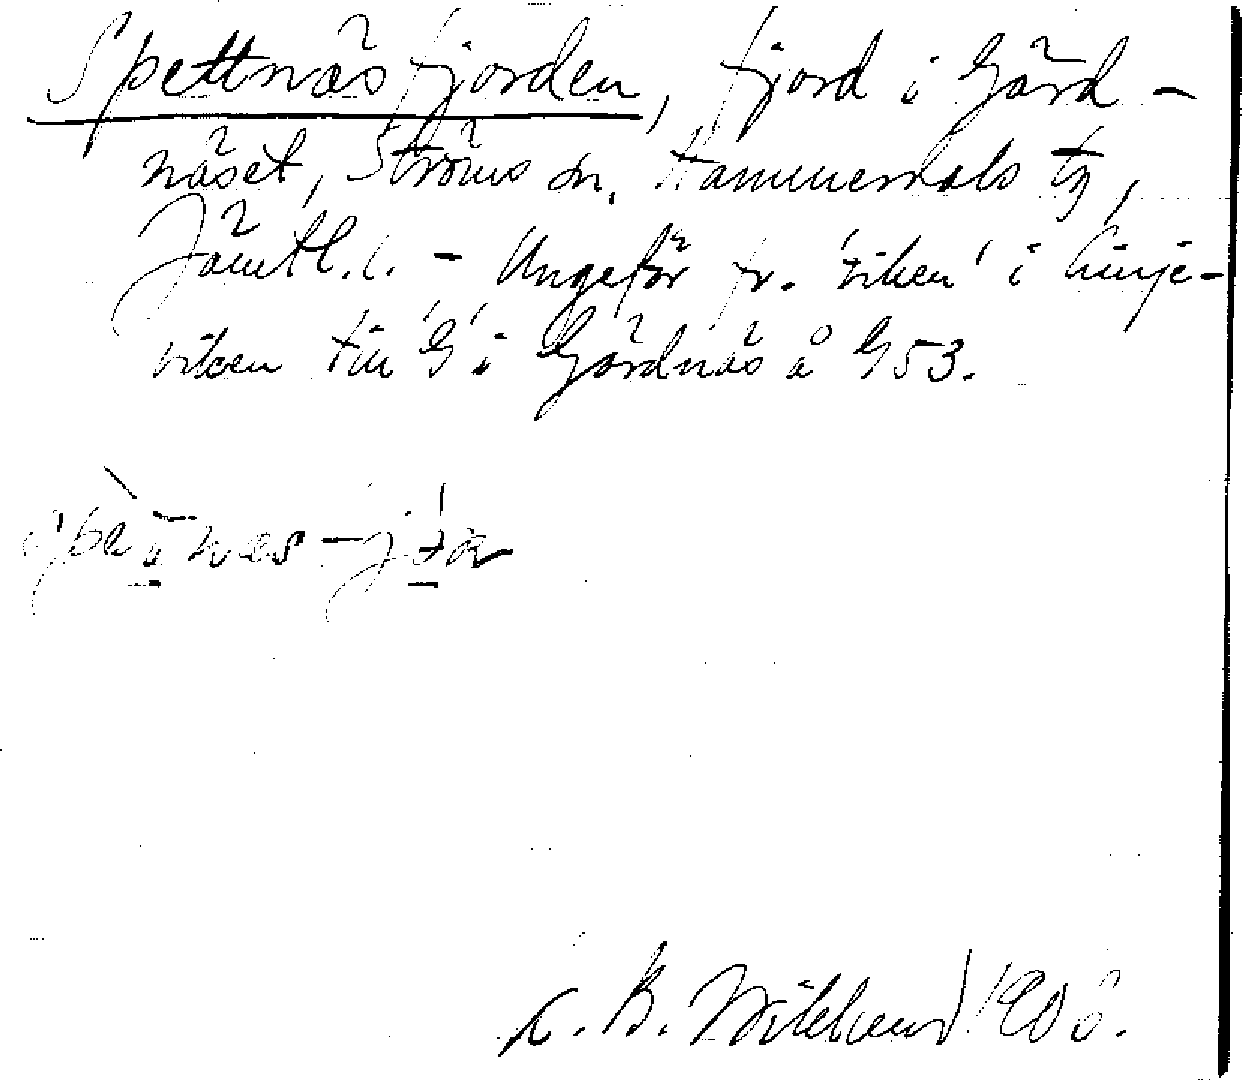 Spettnäsfjorden, fjord i Gärd-
näset, Ströms sn, Hammerdals tg,
Jämtl. l. - Ungefär fr. 'viken' i Linje-
viken till 'G' i Gärdnäs å G53.
K. B. Wiklund 190